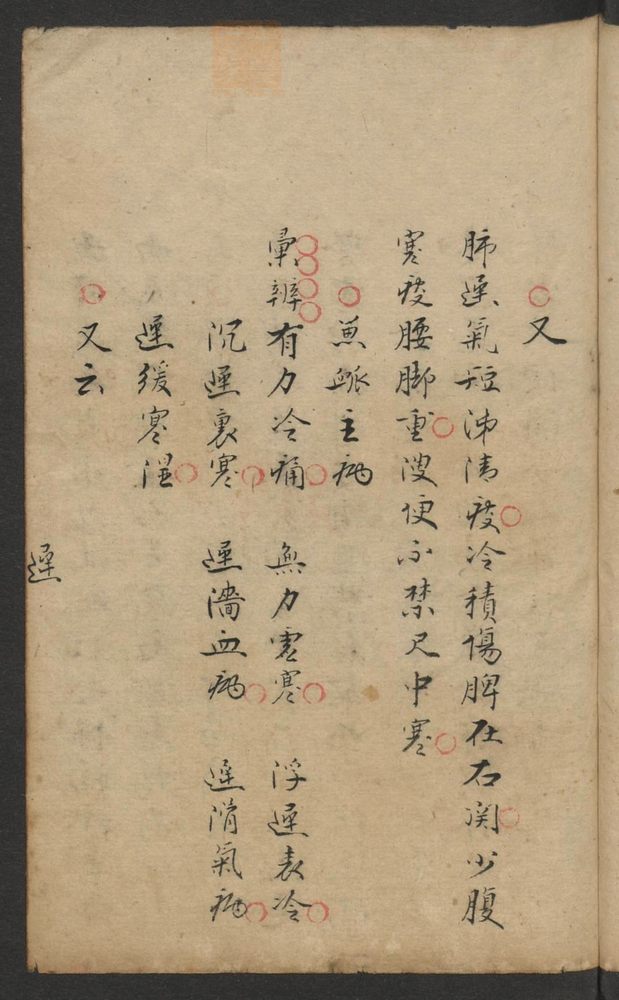 ○又
肺遲氣短涕清痰○冷積傷脾在右関○少腹
寒疫腰脚重○溲便不禁尺中寒○
○兼脈主病
彙辨○○○○有力冷痛○ 無力虛寒○ 浮遲表冷○
沉遲裏寒○ 遲濇血病○ 遲滑氣病○
遲緩寒湿○
○又云
遲